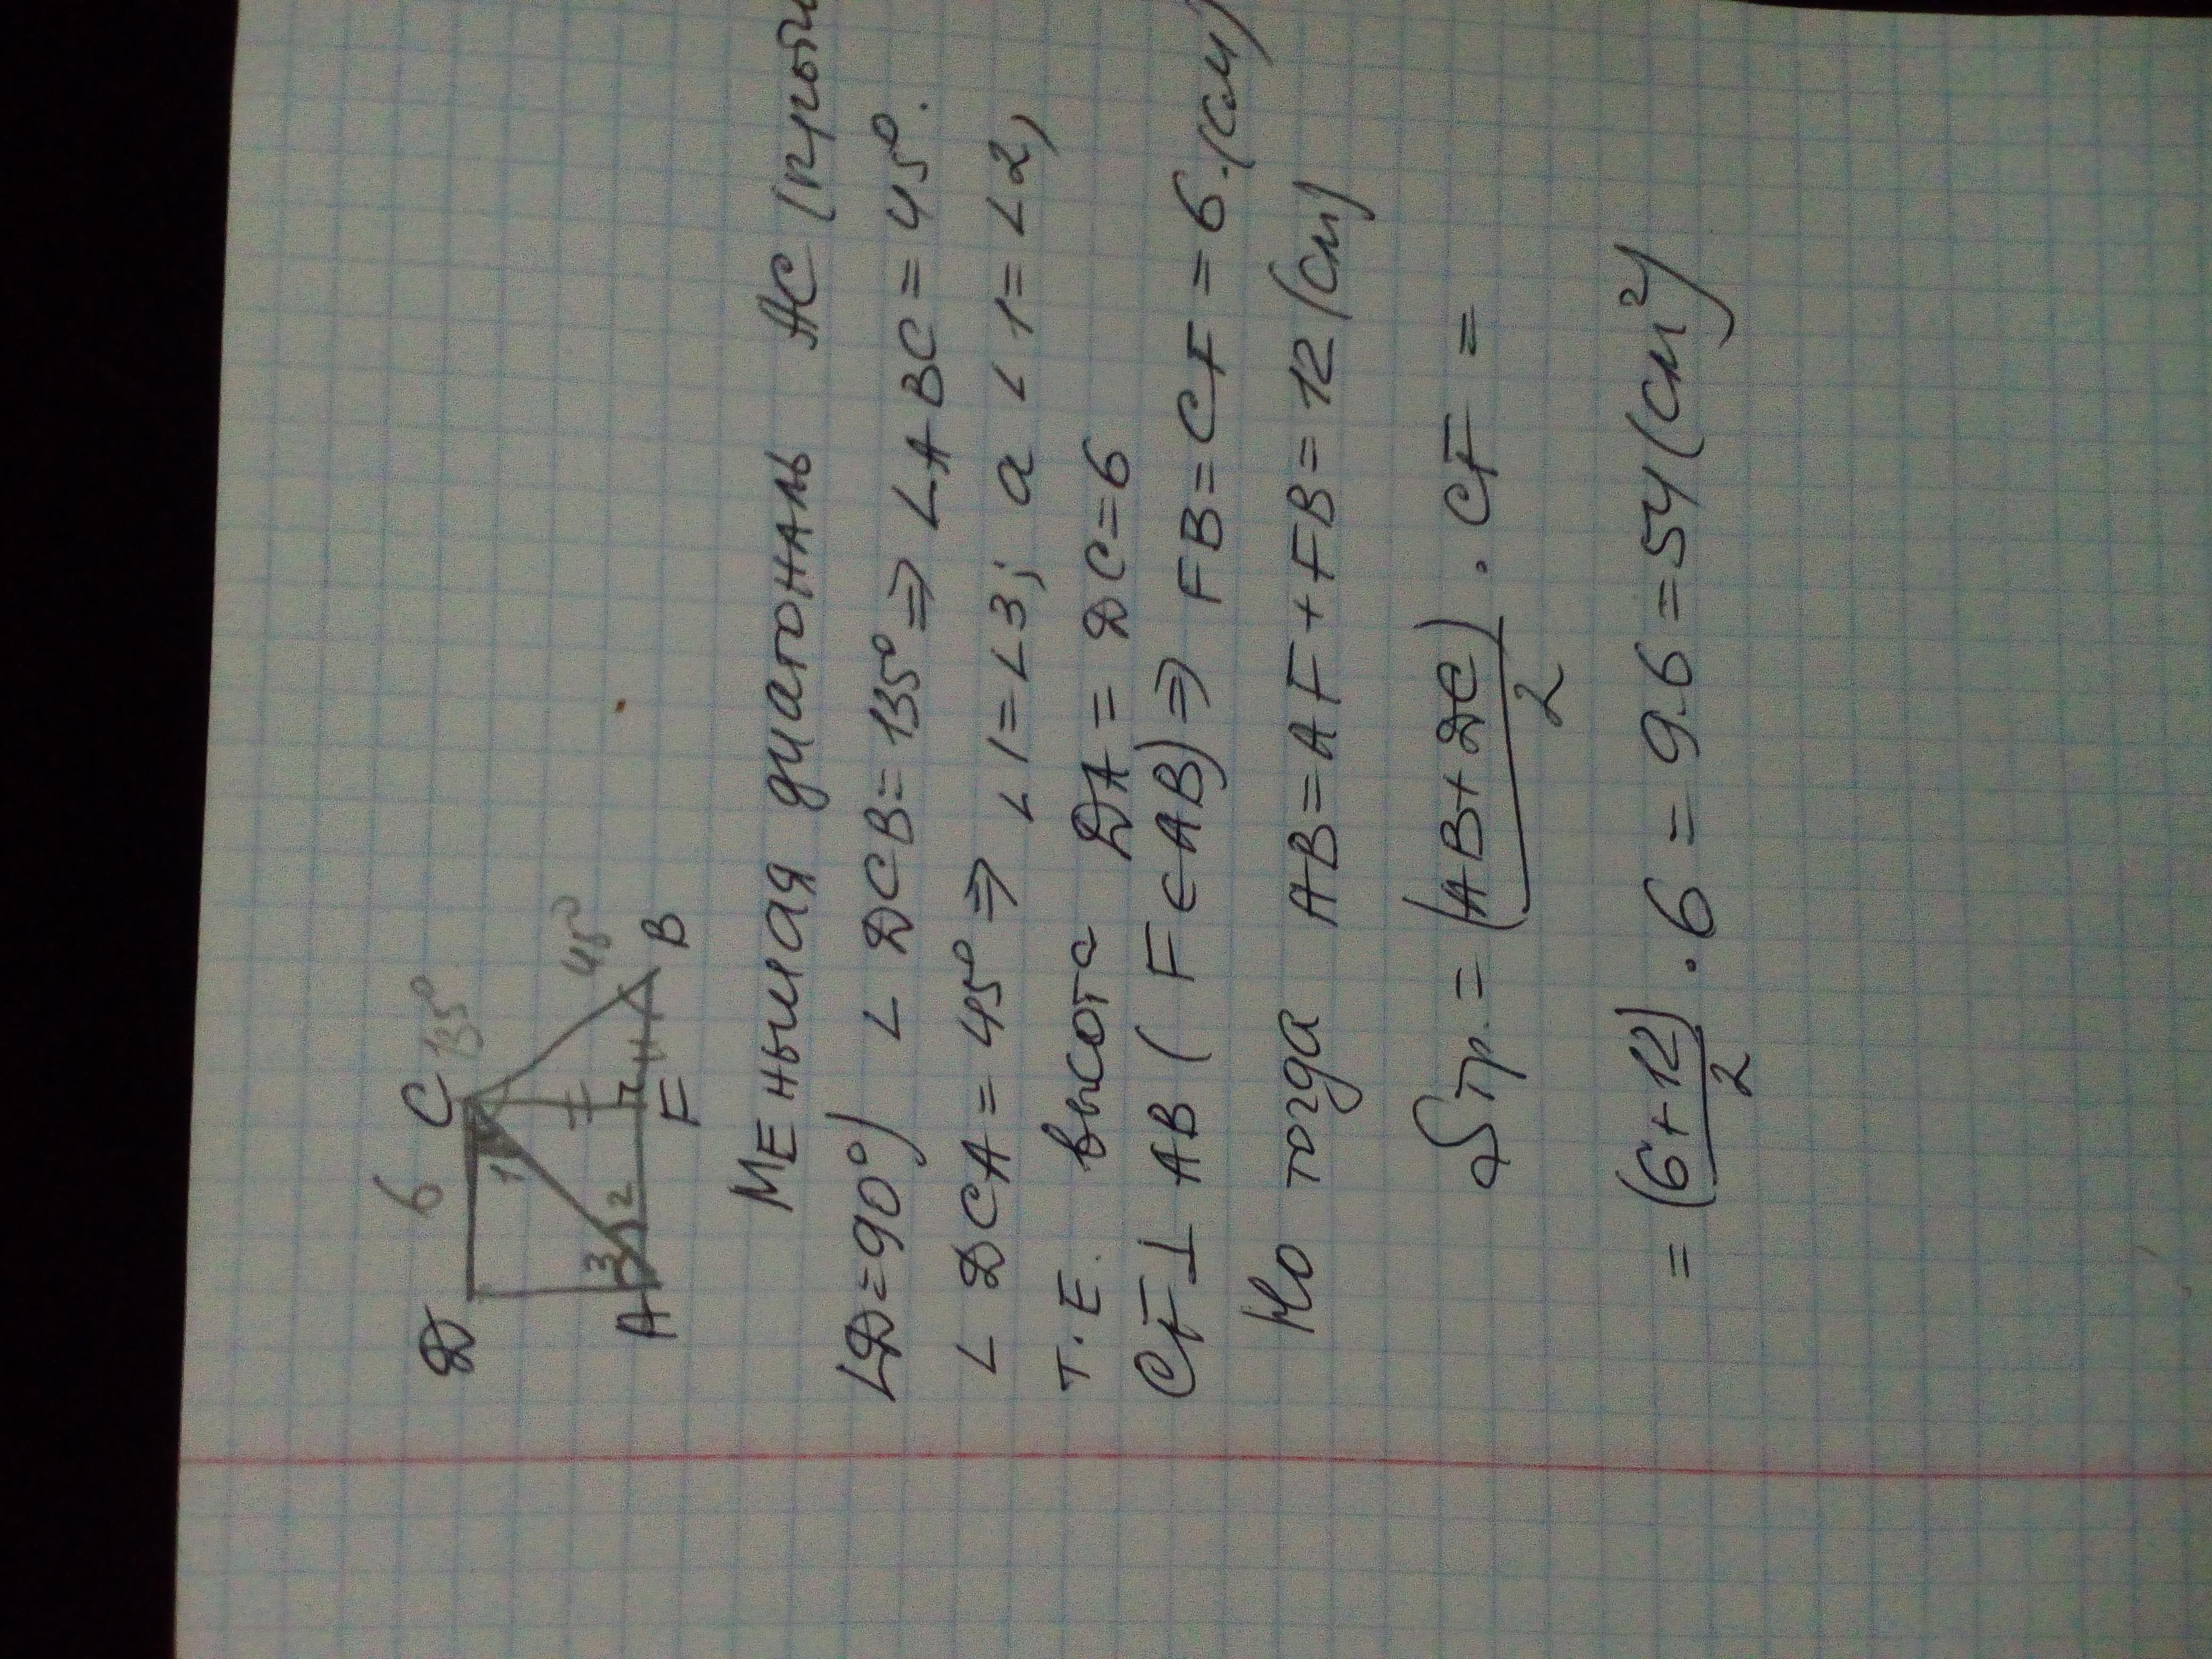 6
Д C 135°
1
45°
3 2
A F B
Меньшая диагональ AC (против
∠Д=90°) ∠ДCB=135° ⇒ ∠ABC=45°.
∠ДCA=45° ⇒ ∠1=∠3; а ∠1=∠2,
т.е. высота ДA=ДC=6
CF⊥AB (F∈AB) ⇒ FB=CF=6.(см)
Но тогда AB=AF+FB=12(см)
Sтр.=(AB+ДC)/2·CF=
=(6+12)/2·6=9·6=54(см²)